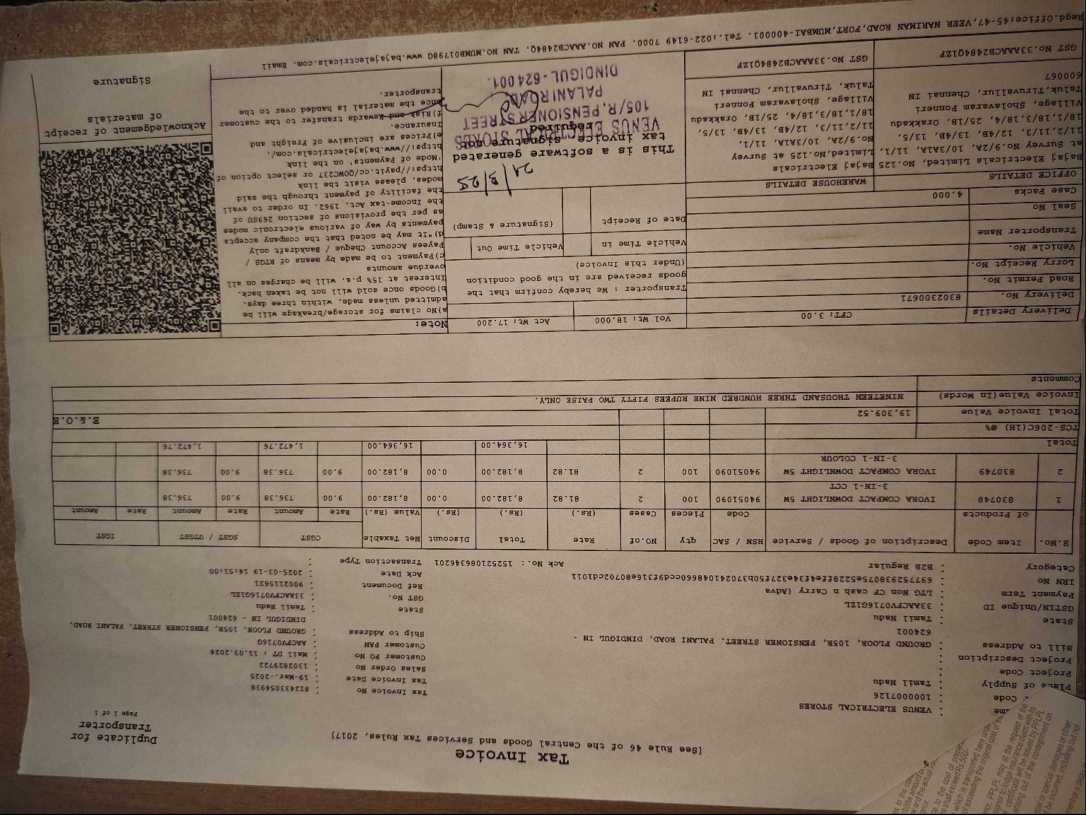 Tax Invoice
(See Rule 46 of the Central Goods and Services Tax Rules, 2017)
Duplicate for
Transporter
Page 1 of 1
: VENUS ELECTRICAL STORES
Code : 1000007126
Place of Supply : Tamil Nadu
Project Code :
Project Description :
Bill to Address : GROUND FLOOR, 105R, PENSIONER STREET, PALANI ROAD, DINDIGUL IN -
624001
State : Tamil Nadu
GSTIN/Unique ID : 33AACPV0716G1ZL
Payment Term : LTG Non CF cash n Carry (Adva
IRN No
Category : B2B Regular
Tax Invoice No : 812433056938
Tax Invoice Date : 19-Mar.-2025
Sales Order No : 1303829722
Customer PO No : Mail DT : 11.03.2024
Customer PAN : AACPV0716G
Ship to Address : GROUND FLOOR, 105R, PENSIONER STREET, PALANI ROAD,
DINDIGUL IN - 624001
State : Tamil Nadu
GST No. : 33AACPV0716G1ZL
Ref Document : 9002115631
Ack Date : 2025-03-19 14:51:00
Ack No.: 152521086346201 Transaction Type :
S.No. Item Code of Products Description of Goods / Service HSN / SAC Code Pieces qty NO.of Cases Rate (Rs.) Total (Rs.) Discount (Rs.) Net Taxable Value (Rs) CGST Rate Amount SGST / UTGST Rate Amount IGST Rate Amount
1 830748 IVORA COMPACT DOWNLIGHT 5W 3-IN-1 CCT 94051090 100 2 81.82 8,182.00 0.00 8,182.00 9.00 736.38 9.00 736.38
2 830749 IVORA COMPACT DOWNLIGHT 5W 3-IN-1 COLOUR 94051090 100 2 81.82 8,182.00 0.00 8,182.00 9.00 736.38 9.00 736.38
Total 16,364.00 16,364.00 1,472.76 1,472.76
TCS-206C(1H) 0%
Total Invoice Value 19,309.52
Invoice Value(In Words) NINETEEN THOUSAND THREE HUNDRED NINE RUPEES FIFTY TWO PAISE ONLY.
E.& O.E
Comments
Delivery Details CFT: 3.00 Vol Wt: 18.000 Act Wt: 17.200
Delivery No. 8302330671
Road Permit No.
Lorry Receipt No.
Vehicle No.
Transporter Name
Seal No
Case Packs 4.000
Transporter : We hereby confirm that the
goods received are in the good condition
(Under this Invoice)
Vehicle Time in Vehicle Time Out
Date of Receipt (Signature & Stamp)
Note:
a)No claims for storage/breakage will be
admitted unless made, within three days.
b)Goods once sold will not be taken back.
Interest at 15% p.a. will be charges on all
overdue amounts
c)Payment to be made by means of RTGS /
Payees Account Cheque / Bankdraft only
d)"It may be noted that the company accepts
payments by way of various electronic modes
as per the provisions of section 269SU of
the Income-tax Act, 1962. In order to avail
the facility of payment through the said
modes, please visit the link
https://payit.cc/QOWC217 or select option of
'Mode of Payments' on the link
https://www.bajajelectricals.com/.
e)Prices are inclusive of Freight and
Insurance.
f)Risk and rewards transfer to the customer
once the material is handed over to the
transporter.
OFFICE DETAILS
Bajaj Electricals Limited, No.125
at Survey No.9/2A, 10/3A1A, 11/1,
11/2,11/3, 12/4B, 13/4B, 13/5,
18/1,18/3,18/4, 25/1B. Orakkadu
Village, Sholavaram Ponneri
Taluk,Tiruvallur, Chennai IN
600067
GST No.33AAACB2484Q1ZP
WAREHOUSE DETAILS
Bajaj Electricals
Limited,No.125 at Survey
No.9/2A, 10/3A1A, 11/1,
11/2,11/3, 12/4B, 13/4B, 13/5,
18/1,18/3,18/4, 25/1B, Orakkadu
Village, Sholavaram Ponneri
Taluk, Tiruvallur, Chennai IN
GST No.33AAACB2484Q1ZP
21/3/25
This is a software generated
tax invoice, signature not
required
VENUS ELECTRICAL STORES
105/R,PENSIONER STREET
PALANI ROAD,
DINDIGUL-624001.
Acknowledgement of receipt
of materials
Signature
Regd.Office:45-47,VEER NARIMAN ROAD,FORT,MUMBAI-400001. Tel.:022-6149 7000. PAN NO.AAACB2484Q. TAN NO.MUMB01798G www.bajajelectricals.com. Email